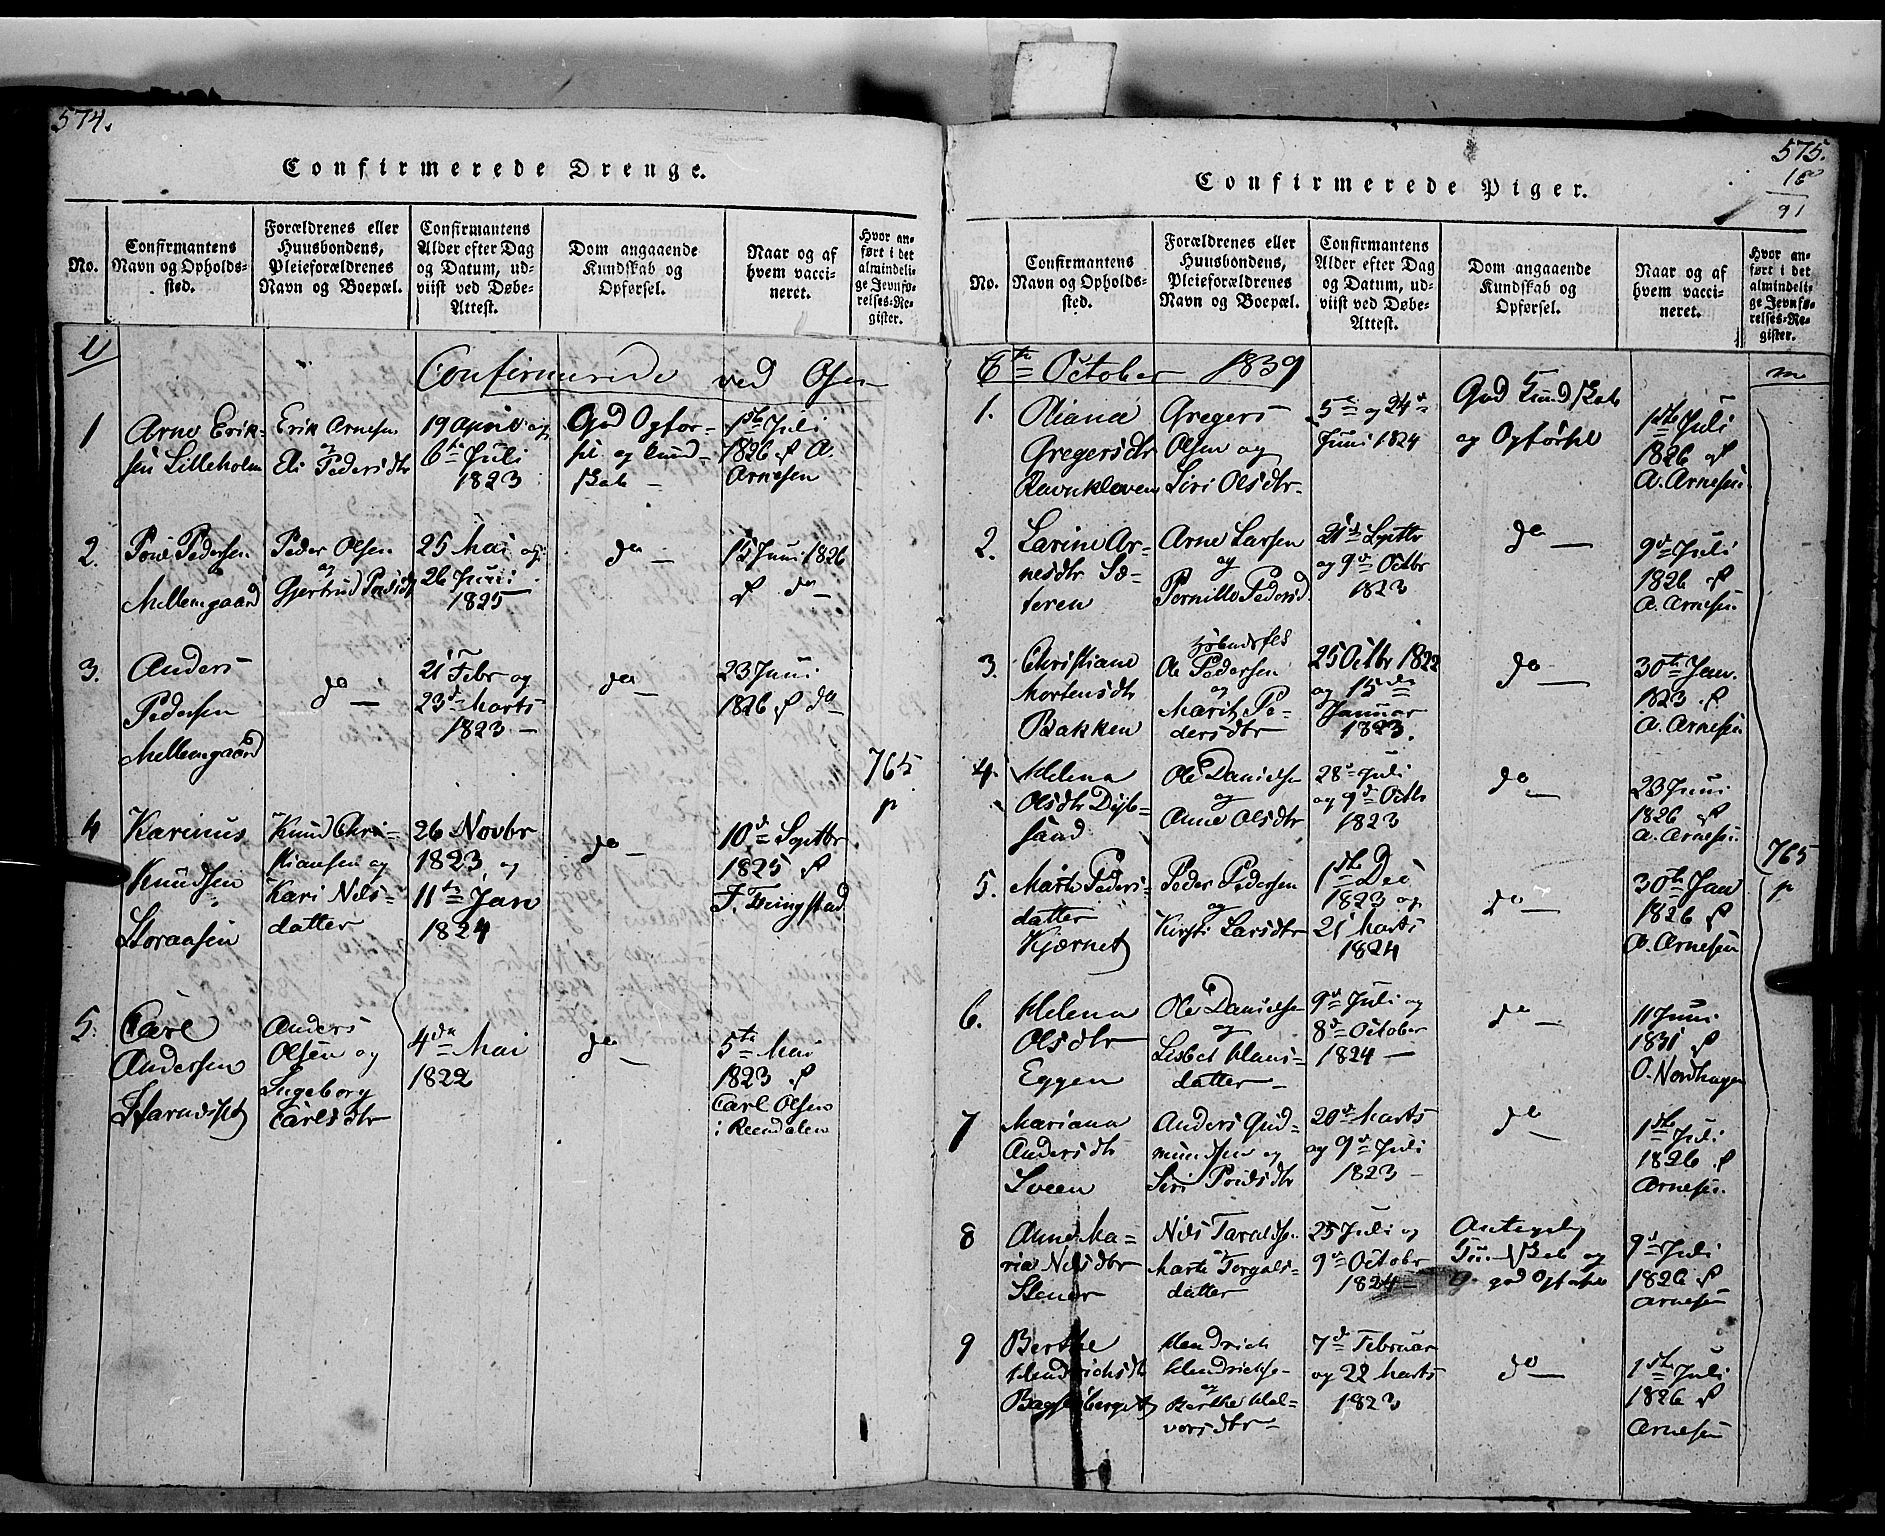 574.
Confirmerede Drenge.
No.
Confirmantens
Navn og Opholds-
sted.
Forældrenes eller
Huusbondens,
Pleieforældrenes
Navn og Boepæl.
Confirmantens
Alder efter Dag
og Datum, ud-
viist ved Døbe-
Attest.
Dom angaaende
Kundskab og
Opførsel.
Naar og af
hvem vacci-
neret.
Hvor an-
ført i det
almindeli-
ge Jevnfø-
relses-Re-
gister.
Confirmerede ved Osen
1
Arne Erik-
sen Lilleholm
Erik Arnesen
og
Eli Pedersdtr
19 April og
6te Juli
1823
God Opfør-
sel og Kund-
skab -
1ste Juli
1826 af A.
Arnesen
2.
Poul Pedersen
Mellemgaard
Peder Olsen
og
Gjertrud Povlsdtr
25 Mai og
26 Juni
1825
do -
15 Juni 1826
af do -
3.
Anders
Pedersen
Mellemgaard
do -
21 Febr og
23de Marts
1823 -
do -
23 Juni
1826 af do -
765
p
4
Karinus
Knudsen
Storaasen
Knud Chri-
stiansen og
Kari Nils-
datter
26 Novbr
1823 og
11te Jan
1824
do -
10de Septbr
1825 af
F. Tringstad
5.
Carl
Andersen
Anders
Olsen og
Ingeborg
Carlsdtr
4de Mai
1822
do -
5te Mai
1823 af
Carl Olsen
i Reendalen
575.
16
91
Confirmerede Piger.
No.
Confirmantens
Navn og Opholds-
sted.
Forældrenes eller
Huusbondens,
Pleieforældrenes
Navn og Boepæl.
Confirmantens
Alder efter Dag
og Datum, ud-
viist ved Døbe-
Attest.
Dom angaaende
Kundskab og
Opførsel.
Naar og af
hvem vacci-
neret.
Hvor an-
ført i det
almindeli-
ge Jevnfø-
relses-Re-
gister.
6te October 1839
1.
Oliana
Gregersdtr
Ravnkleven
Gregers
Olsen og
Siri Olsdtr
5te og 24de
Juni 1824
God Kundskab
og Opførsel
1ste Juli
1826 af
A. Arnesen
2.
Larine Ar-
nesdtr Sæ-
teren
Arne Larsen
og
Pernille Pedersd
21de Septbr
og 9de Octbr
1823
do -
9de Juli
1826 af
A. Arnesen
3.
Christiane
Mortensdtr
Bakken
Ole Pedersen
og
Marit Pe-
dersdtr
25 Octbr 1822
og 15de
Januar
1823.
do -
30te Jan.
1823 af
A. Arnesen
4.
Helena
Olsdtr Dyb-
sand
Ole Danielsen
og
Anne Olsdtr
28de Juli
og 9de Octb
1823
do -
23 Juni
1826 af
A. Arnesen
765
p
5.
Marte Peders-
datter
Kjernet
Peder Pedersen
og
Kirsti Larsdtr
1ste Dec
1823 og
21 Marts
1824
do -
30te Jan
1826 af
A. Arnesen
6.
Helena
Olsdtr
Eggen
Ole Danielsen
og
Lisbet Hans-
datter -
9de Juli og
8de October
1824 -
do -
11 Juni
1831 af
O. Nordhagen
7
Mariana
Andersdtr
Sveen
Anders Gud-
mundsen og
Siri Povlsdtr
20de Marts
og 9de Juli
1823 -
do -
1ste Juli
1826 af
Arnesen.
8
Anne Ma-
ria Nilsdtr
Stener
Nils Taraldsen
Marte Torgals-
datter
25 Juli og
9de October
1824 -
Antagelig
Kundskab og
god Opførsel
9de Juli
1826 af
Arnesen
9
Berthe
Hendrichsdtr
Hendrich
Hendrichse-
og
Berthe Hal-
vorsdtr -
7de Februar
og 22 Marts
1823
do -
1ste Juli
1826 af
Arnesen